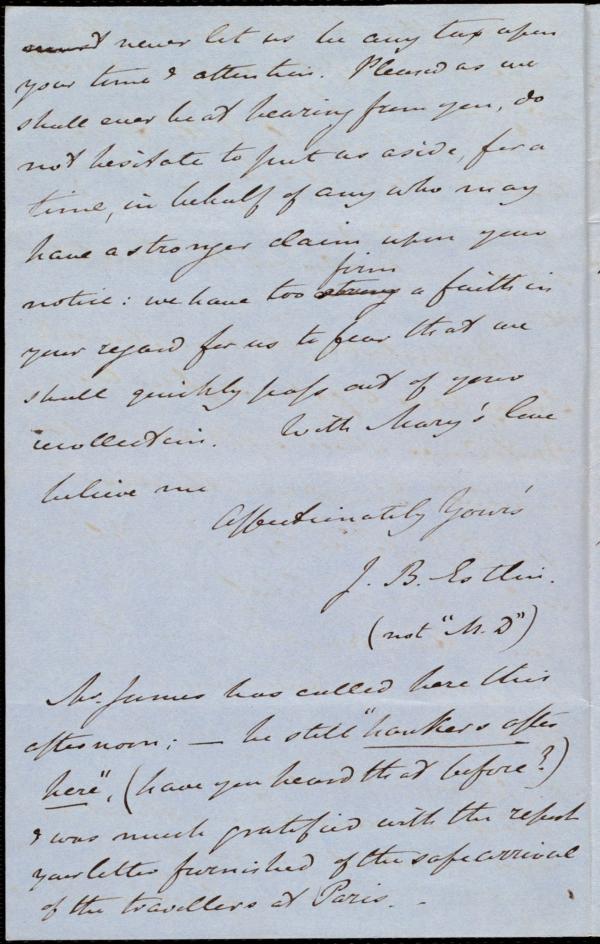 never let us be any tax upon
your time & attention. Pleased as we
shall ever be at hearing from you, do
not hesitate to put us aside, for a
time, in behalf of any who may
have a stronger claim upon your
firm
notice: we have too strong a faith in
your regard for us to fear that we
shall quickly pass out of your
recollection. With Mary's love
believe me
Affectionately Yours
J. B. Estlin.
(not "M.D")
Mr. James has called here this
afternoon; — he still "hankers after
here", (have you heard that before?)
& was much gratified with the report
your letter furnished of the safe arrival
of the travellers at Paris. -